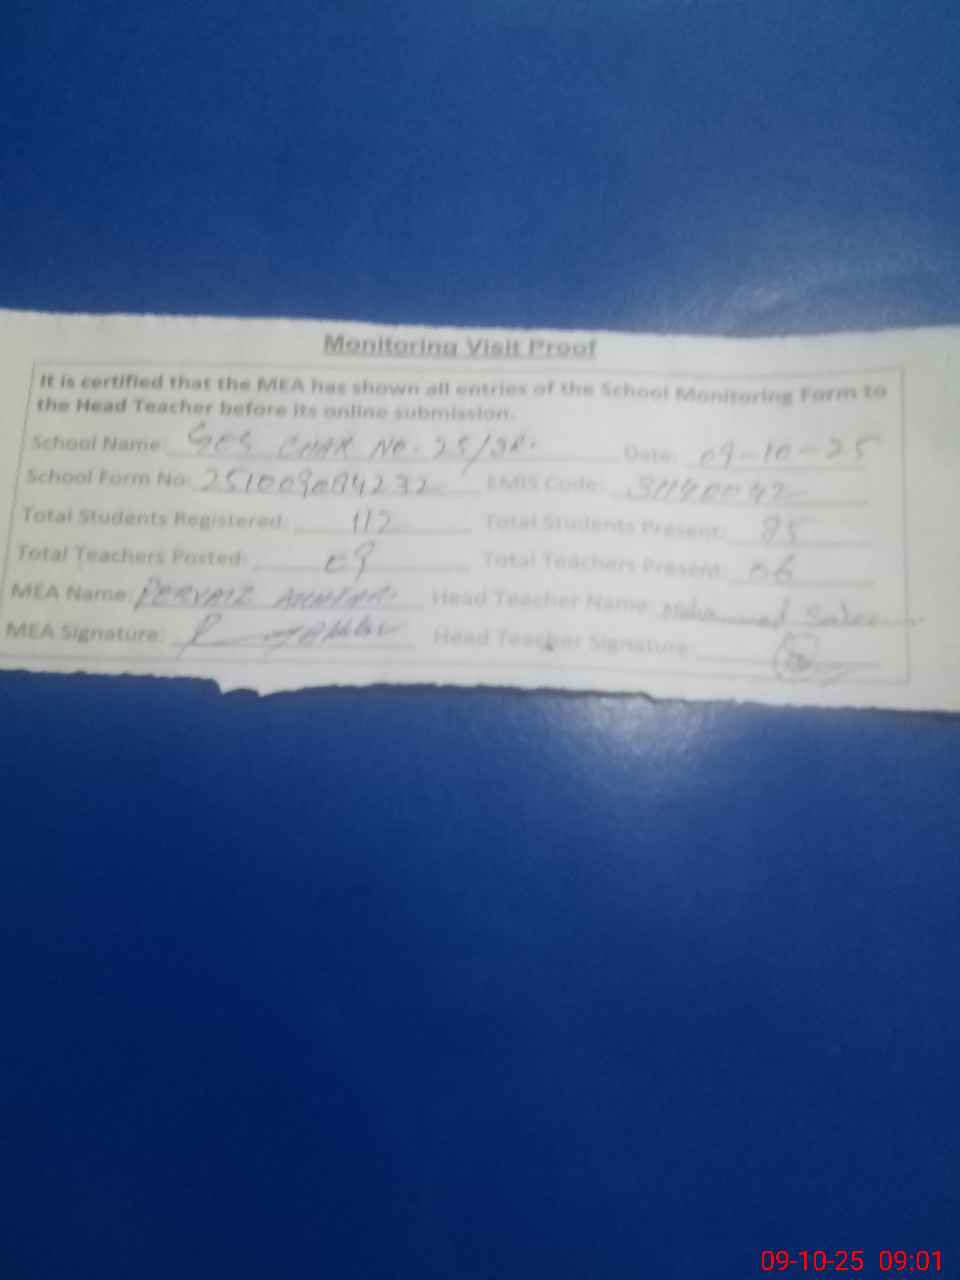 Monitoring Visit Proof
It is certified that the MEA has shown all entries of the School Monitoring Form to
the Head Teacher before its online submission.
School Name: GES CHAK NO. 25/3R. Date: 09-10-25
School Form No: EMIS Code: 31140042
Total Students Registered: 112 Total Students Present: 85
Total Teachers Posted: 09 Total Teachers Present: 06
MEA Name: PERVAIZ AKHTAR Head Teacher Name:
MEA Signature: Head Teacher Signature:
09-10-25 09:01